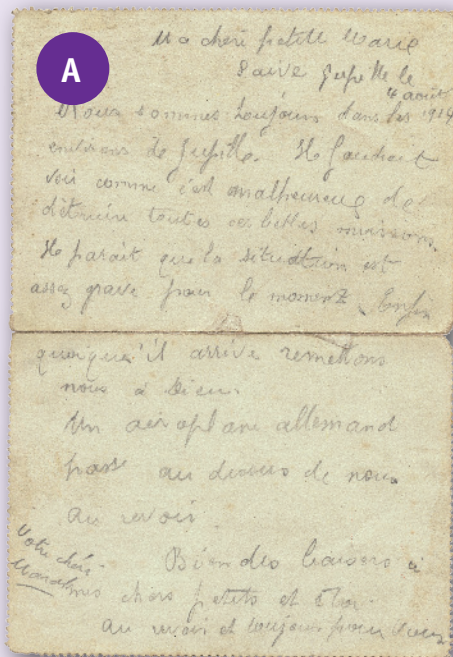 A
Ma chéri petite Marie
Jupille le
4 août
Nous sommes toujours dans les 1914
environs de Jupille. Il faudrait
voir comme c'est malheureux de
détruire toutes ces belles maisons.
Il parait que la situation est
assez grave pour le moment. Enfin
quoiqu'il arrive remettons
nous à Dieu.
Un aéroplane allemand
passe au dessus de nous
au revoir.
Bien des baisers à
mes chers petits et
au revoir et toujours pour vous
Votre chér